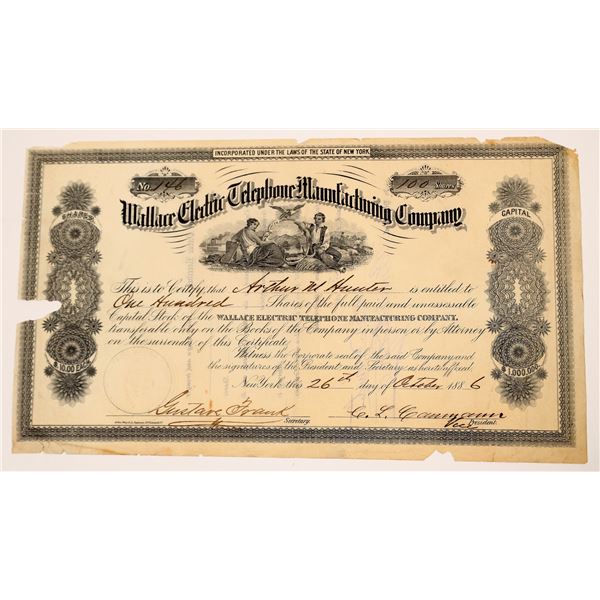 INCORPORATED UNDER THE LAWS OF THE STATE OF NEW YORK
No. 146
100 Shares
Wallace Electric Telephone Manufacturing Company
SHARES
CAPITAL
This is to Certify, that Arthur M Hunter is entitled to
One Hundred Shares of the full paid and unassessable
Capital Stock of the WALLACE ELECTRIC TELEPHONE MANUFACTURING COMPANY.
transferable only on the Books of the Company in person or by Attorney
on the surrender of this Certificate.
$10.00 EACH
$1,000,000
Witness the Corporate seal of the said Company and
the signatures of the President and Secretary, as hereto affixed.
New York this 26th day of October 1886
Gustave Frank
Secretary.
Vice President.